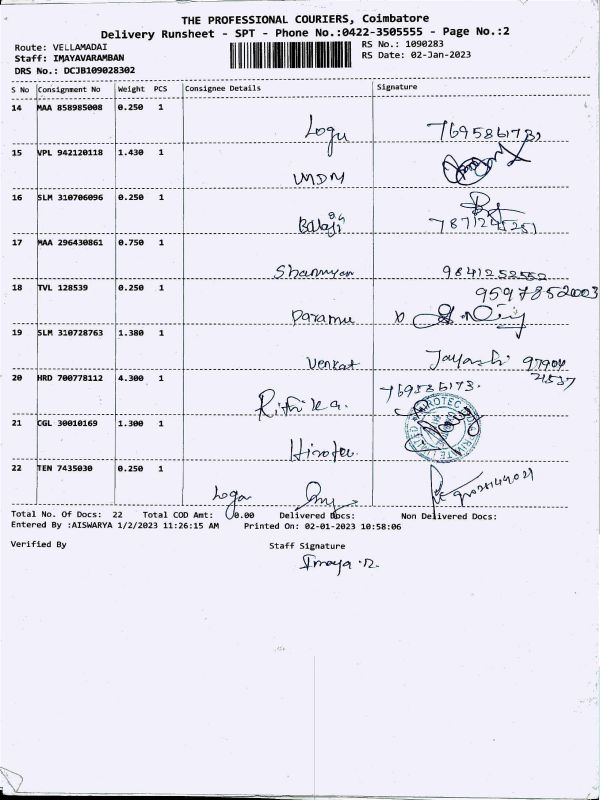 THE PROFESSIONAL COURIERS, Coimbatore
Delivery Runsheet - SPT - Phone No.:0422-3505555 - Page No.:2
Route: VELLAMADAI RS No.: 1090283
Staff: IMAYAVARAMBAN RS Date: 02-Jan-2023
DRS No.: DCJB109028302
S No Consignment No Weight PCS Consignee Details Signature
14 MAA 858985008 0.250 1
Logu
15 VPL 942120118 1.430 1
MDM
16 SLM 310706096 0.250 1
Balaji 7871245251
17 MAA 296430861 0.750 1
9841252552
18 TVL 128539 0.250 1
9597852003
19 SLM 310728763 1.380 1
Venkat
20 HRD 700778112 4.300 1
Rithika.
21 CGL 30010169 1.300 1
22 TEN 7435030 0.250 1
Total No. Of Docs: 22 Total COD Amt: 0.00 Delivered Docs: Non Delivered Docs:
Entered By :AISWARYA 1/2/2023 11:26:15 AM Printed On: 02-01-2023 10:58:06
Verified By Staff Signature
Imaya.R.